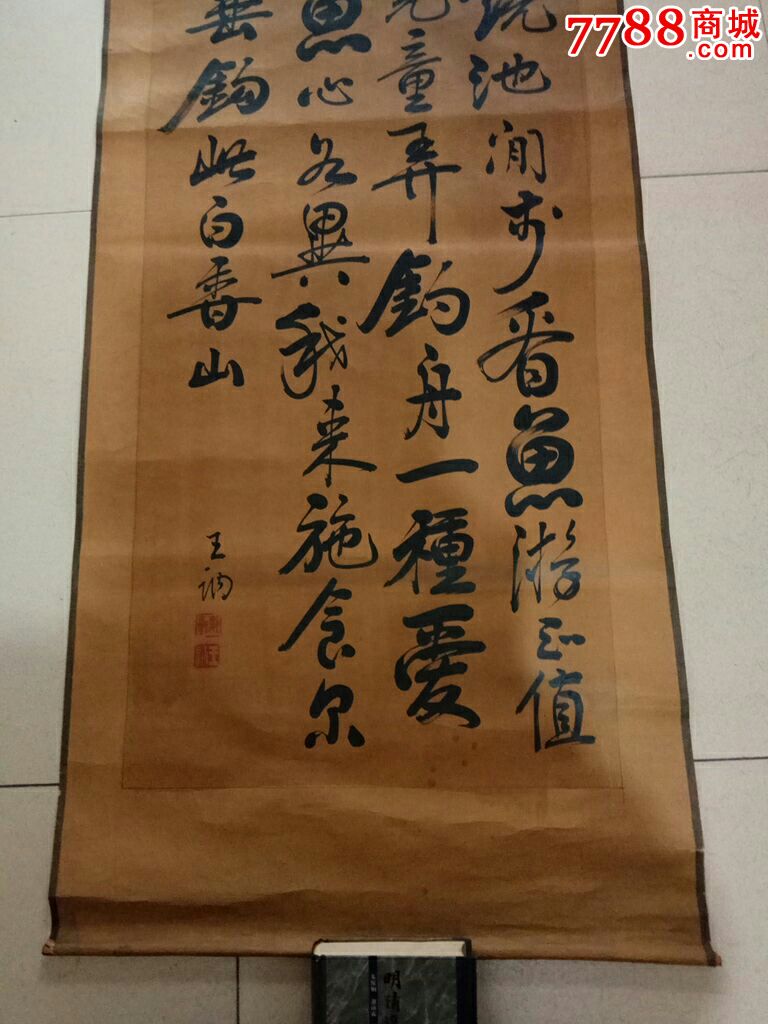 7788商城
.com
繞池閒步看魚游正值
兒童弄釣舟一種愛
魚心各異我來施食尔
垂鈎 此白香山
王
明清